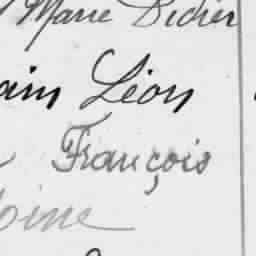 Marie Didier
ain Léon
François
oine